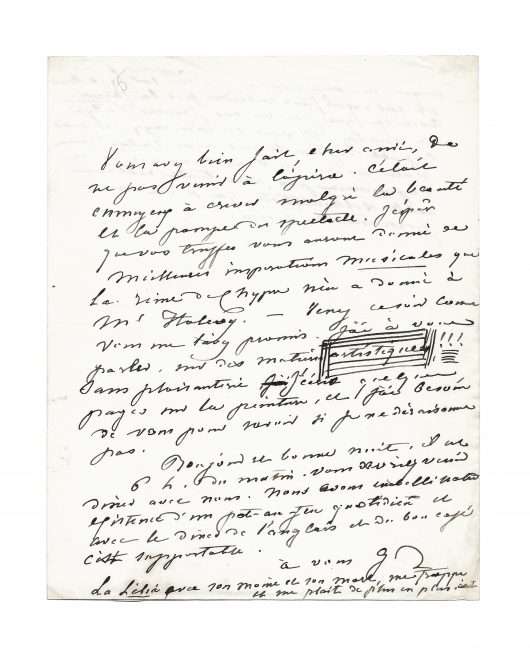 Vous avez bien fait, cher ami, de
ne pas venir à l'opéra. C'était
ennuyeux à crever malgré la beauté
et la pompe du spectacle. J'espère
que vos truffes vous auront donné de
meilleures inspirations musicales que
la reine de Chypre n'en a donné à
Mr Halevy. — Venez ce soir comme
vous me l'avez promis. J'ai à vous
parler, sur des matières artistiques !!!
Sans plaisanterie j'écris quelques
pages sur la peinture, et j'ai besoin
de vous pour savoir si je ne déraisonne
pas.
Bonjour et bonne nuit, il est
6 h. du matin. vous devriez venir
diner avec nous. Nous avons embelli notre
existence d'un pot-au-feu quotidien et
avec le diner de l'anglais et du bon café
c'est supportable.
à vous G
La Lélia avec son moine et son mort, me frappe
et me plait de plus en plus.